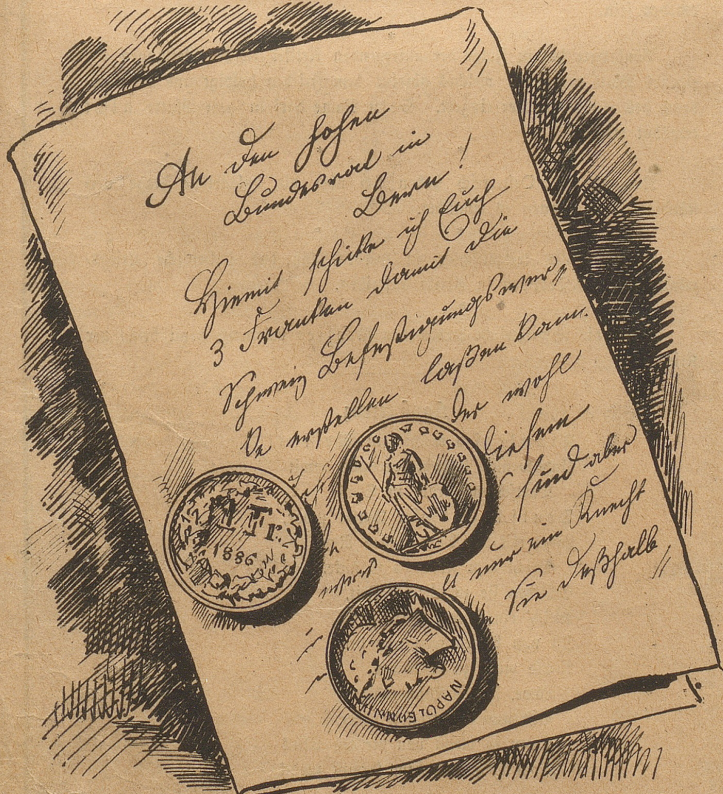 An den hohen
Bundesrat in
Bern!
Hiemit schicke ich Euch
3 Franken damit die
Schweiz Befestigungswer-
ke erstellen laßen kann.
Der wohl
diesem
sind aber
nur ein Knecht
Sie deßhalb
1 Fr.
1886
NAPOLEON III